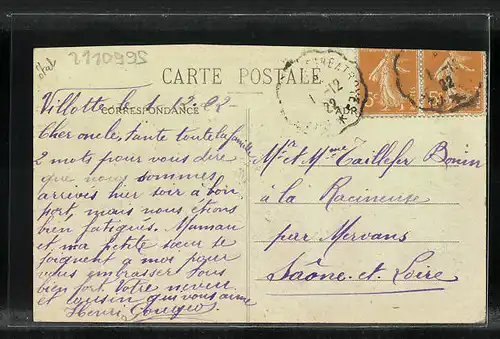 état
2110995
CARTE POSTALE
CORRESPONDANCE
Villotte le 1 12 22
Cher oncle, tante toute la famille
2 mots pour vous dire
que nous sommes
arrivés hier soir à bon
port, mais nous étions
bien fatigués. Maman
et ma petite sœur se
joignent à moi pour
vous embrasser tous
bien fort Votre neveu
et cousin qui vous aime
Henri
1-12
22
ADR
5
Mr et Mme Taillefer Bonin
à la Racineuse
par Mervans
Saône-et-Loire